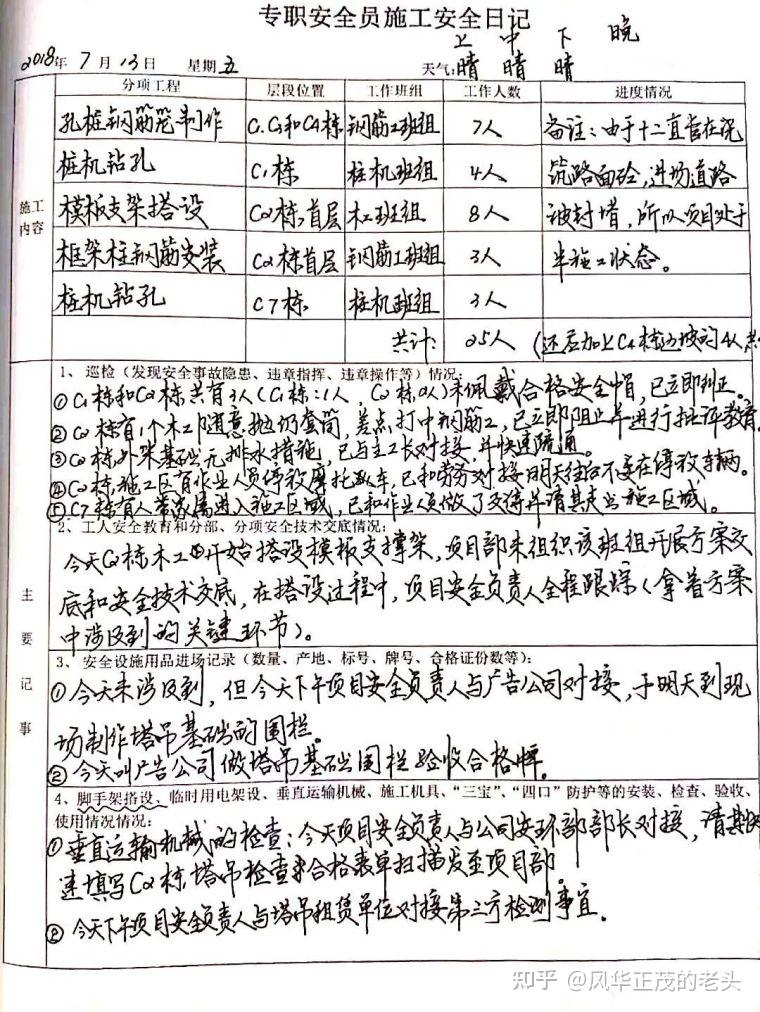 专职安全员施工安全日记
上 中 下 晚
2018年 7 月 13日 星期 五 天气:晴 晴 晴
分项工程 层段位置 工作班组 工作人数 进度情况
孔桩钢筋笼制作 C1.C3和C4栋 钢筋工班组 7人 备注:由于十二直管在浇
桩机钻孔 C1栋 桩机班组 4人 筑路面砼,进场道路
施工内容 模板支架搭设 C2栋,首层 木工班组 8人 被封堵,所以项目处于
框架柱钢筋安装 C2栋首层 钢筋工班组 3人 半施工状态。
桩机钻孔 C7栋 桩机班组 3人
共计: 25人 (还应加上C4栋边坡的4人,共
主要记事
1、巡检(发现安全事故隐患、违章指挥、违章操作等)情况:
①C1栋和C2栋共有3人(C1栋:1人,C2栋2人)未佩戴合格安全帽,已立即纠正。
②C2栋有1个木工随意抛扔套筒,差点打中钢筋工,已立即阻止并进行批评教育.
③C2栋外架基础无排水措施,已与主工长对接,并快速疏通。
④C2栋,施工区有作业人员停放摩托车,已和劳务对接明天往后不要在停放车辆。
⑤C7栋有人带家属进入施工区域,已和作业人员做了交待并请其走出施工区域。
2、工人安全教育和分部、分项安全技术交底情况:
今天C2栋木工开始搭设模板支撑架,项目部未组织该班组开展方案交
底和安全技术交底,在搭设过程中,项目安全负责人全程跟踪(拿着方案
中涉及到的关键环节)。
3、安全设施用品进场记录(数量、产地、标号、牌号、合格证份数等):
①今天未涉及到,但今天下午项目安全负责人与广告公司对接,于明天到现
场制作塔吊基础的围栏。
②今天叫广告公司做塔吊基础围栏验收合格牌。
4、脚手架搭设、临时用电架设、垂直运输机械、施工机具、“三宝”、“四口”防护等的安装、检查、验收、
使用情况情况:
①垂直运输机械的检查:今天项目安全负责人与公司安环部部长对接,请其
速填写C2栋塔吊检查合格表单扫描发至项目部。
②今天下午项目安全负责人与塔吊租赁单位对接第三方检测事宜.
知乎 @风华正茂的老头